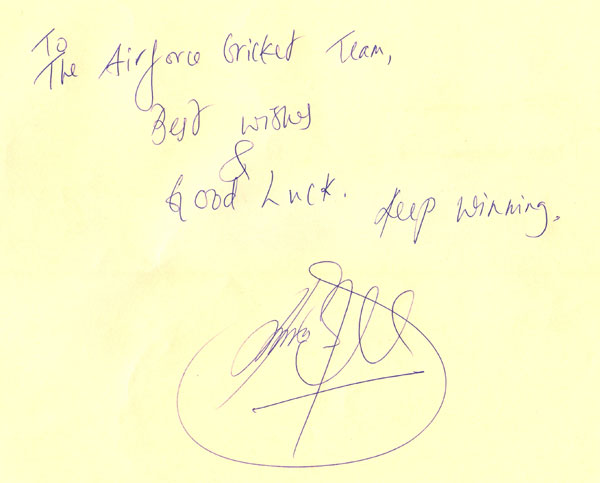 To
The Airforce Cricket Team,
Best wishes
&
Good Luck. Keep Winning.